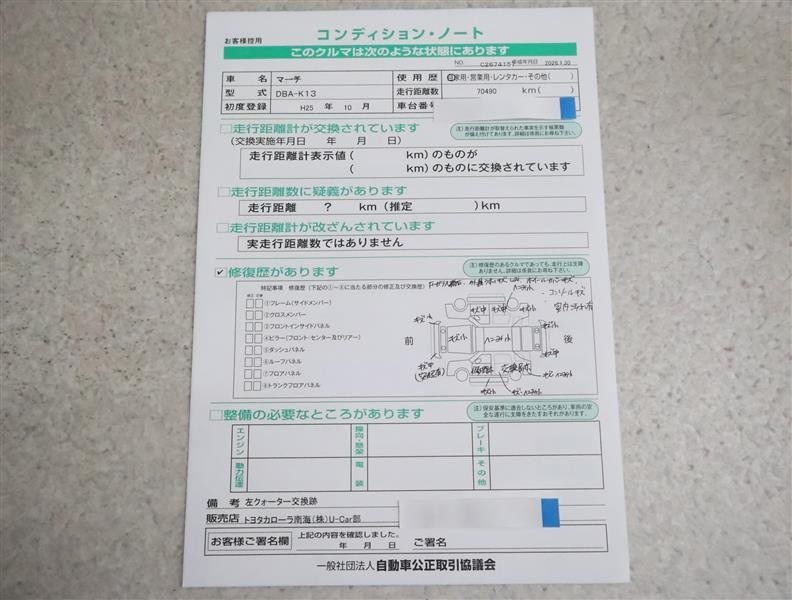 お客様控用
コンディション・ノート
このクルマは次のような状態にあります
NO. C2674157 作成年月日 2026.1.30
車名 マーチ 使用歴 自家用・営業用・レンタカー・その他( )
型式 DBA-K13 走行距離数 70490 km( )
初度登録 H25 年 10 月 車台番号
□走行距離計が交換されています
(注)走行距離計が取替えられた事実を示す帳票類が備え付けてあります。詳細は係員にお尋ね下さい。
(交換実施年月日 年 月 日)
走行距離計表示値( km)のものが
( km)のものに交換されています
□走行距離数に疑義があります
走行距離 ? km(推定 )km
□走行距離計が改ざんされています
実走行距離数ではありません
✓修復歴があります
(注)修復歴のあるクルマであっても、走行上は支障ありません。詳細は係員にお尋ね下さい。
特記事項 修復歴(下記の①~⑧に当たる部分の修正及び交換歴)
修正 交換
①フレーム(サイドメンバー)
②クロスメンバー
③フロントインサイドパネル
④ピラー(フロント・センター及びリアー)
⑤ダッシュパネル
⑥ルーフパネル
⑦フロアパネル
⑧トランクフロアパネル
前
後
□整備の必要なところがあります
(注)保安基準に適合しないところがあり、車両の安全な運行に支障をきたすおそれがあります。
エンジン 操向・懸架 ブレーキ
動力伝達 電装 その他
備考 左クォーター交換跡
販売店 トヨタカローラ南海(株)U-Car部
お客様ご署名欄 上記の内容を確認しました。
年 月 日 ご署名
一般社団法人 自動車公正取引協議会